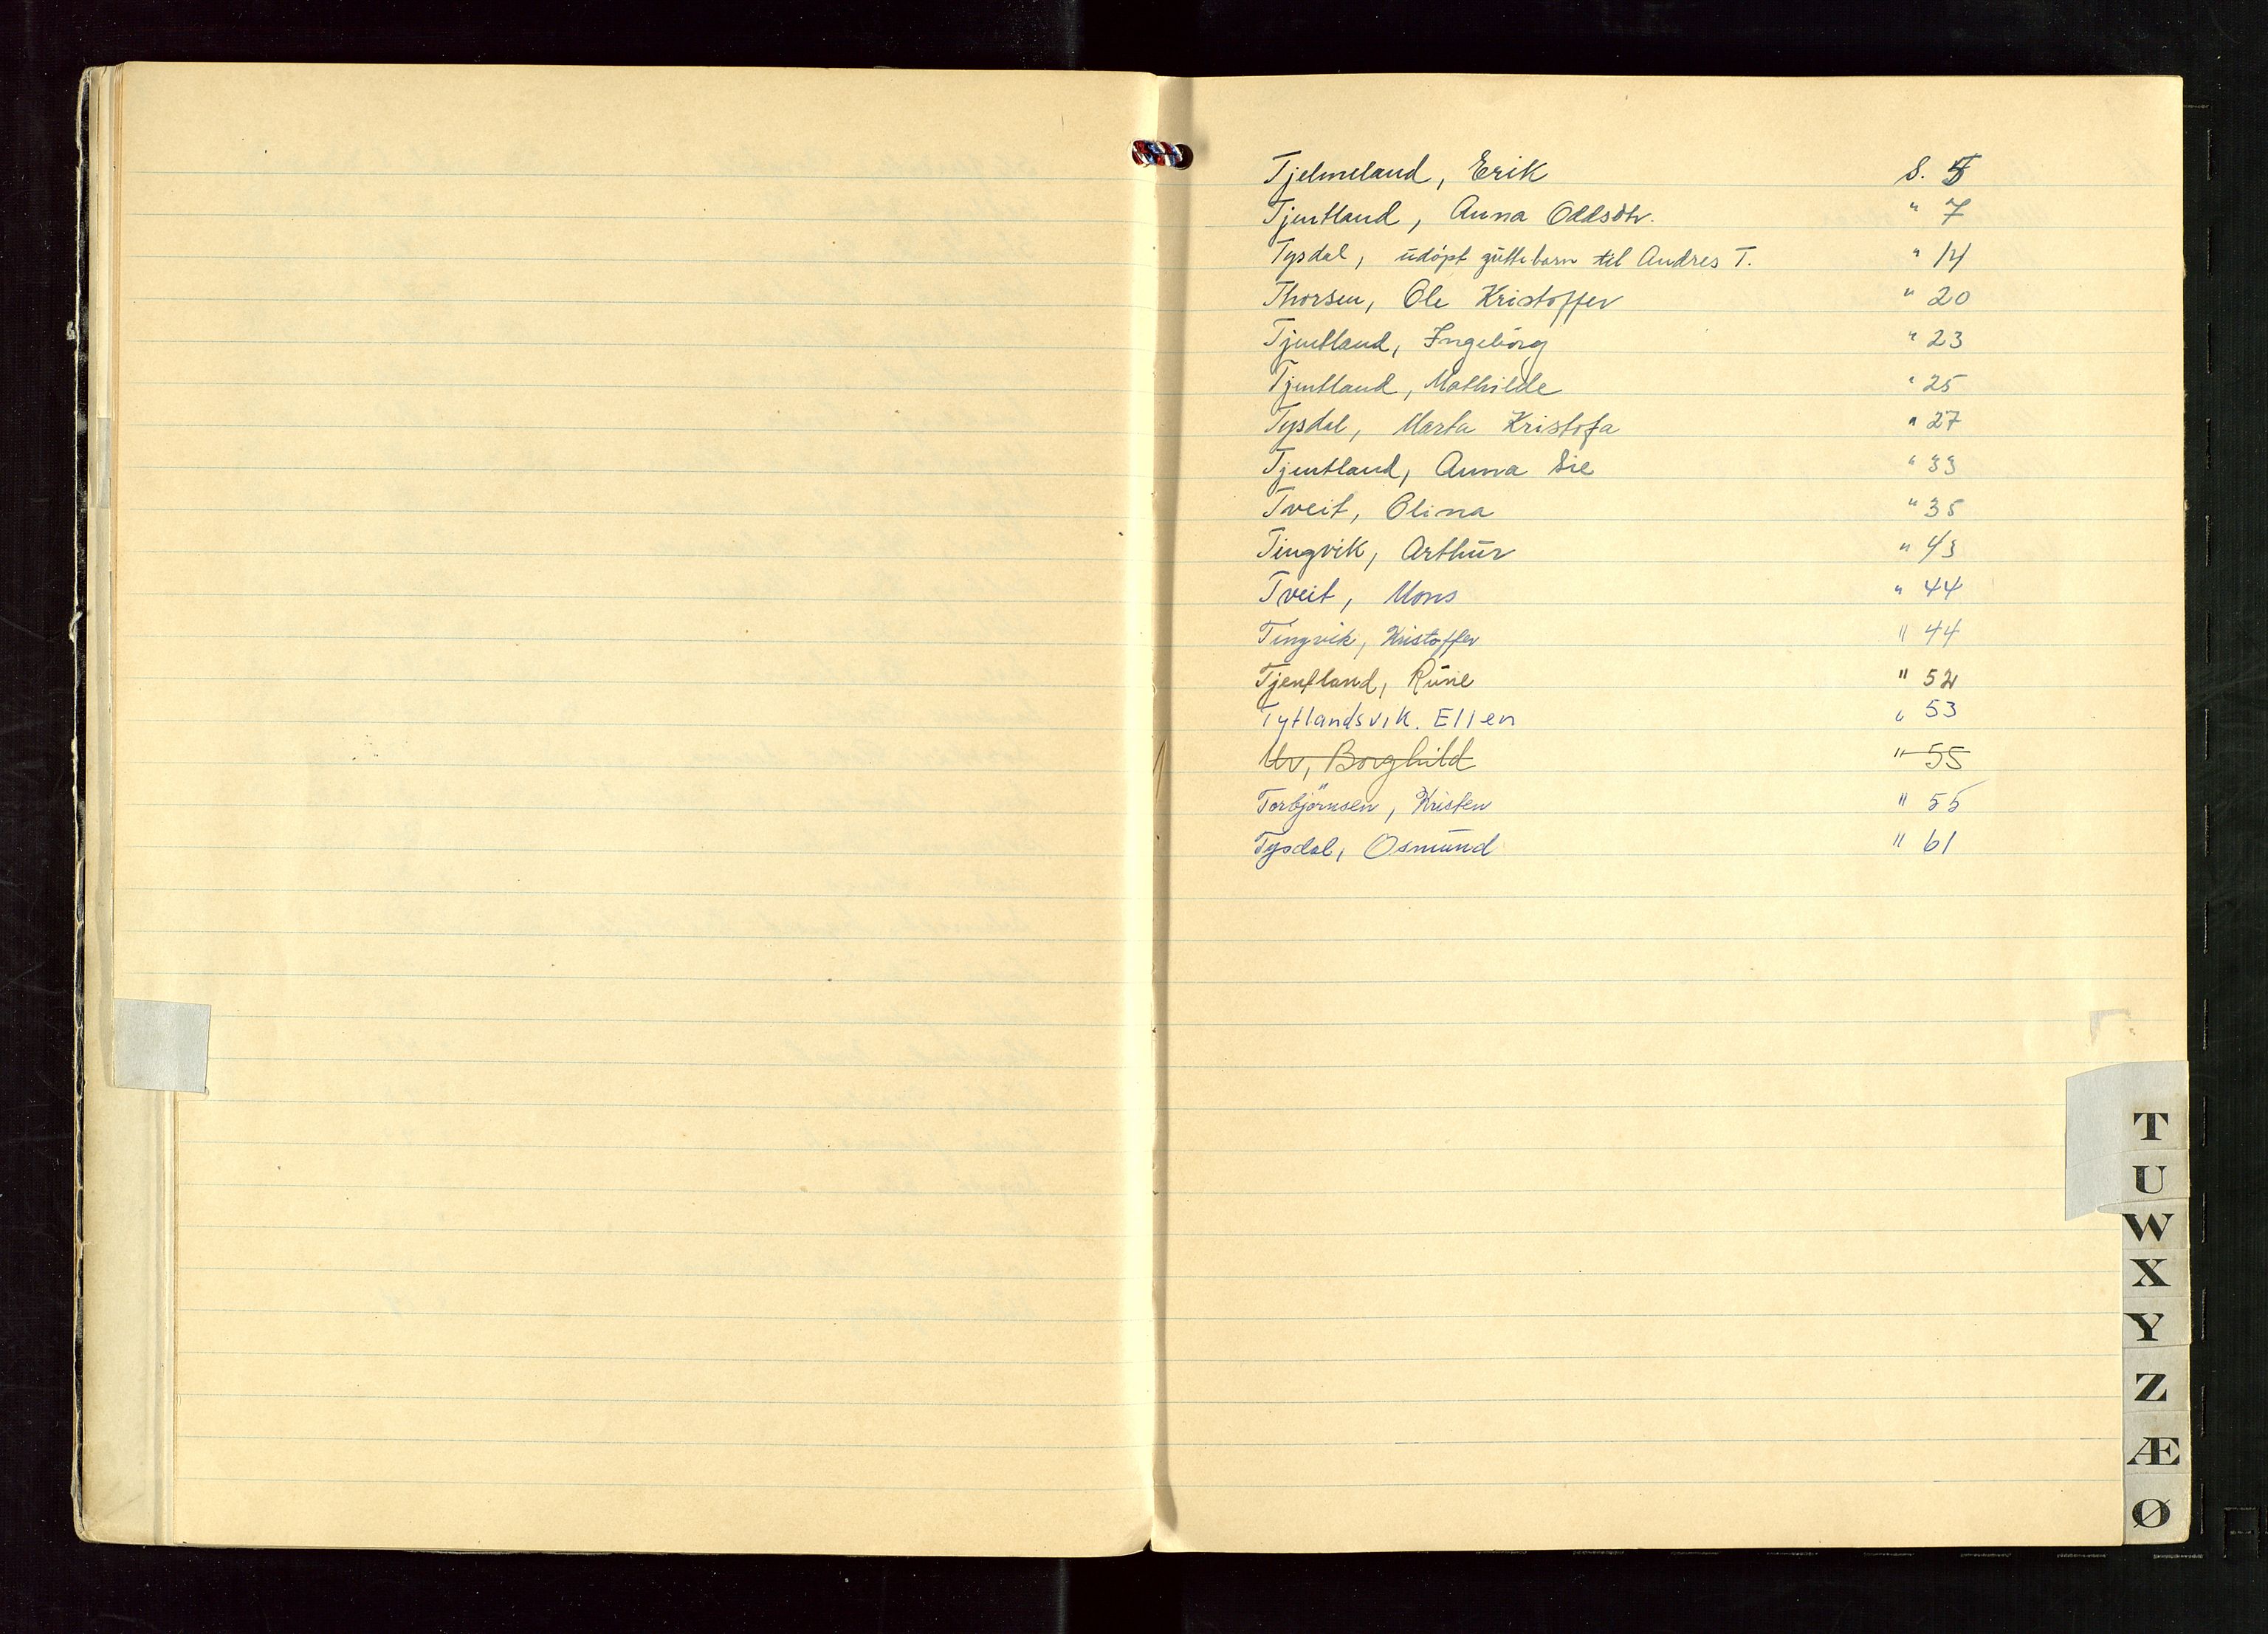 Tjelmeland, Erik S. 5
Tjentland, Anna Oddsdtr. " 7
Tysdal, udøpt guttebarn til Andres T. " 14
Thorsen, Ole Kristoffer " 20
Tjentland, Ingeborg " 23
Tjentland, Mathilde " 25
Tysdal, Marta Kristofa " 27
Tjentland, Anna Sie " 33
Tveit, Olina " 35
Tingvik, Arthur " 43
Tveit, Mons " 44
Tingvik, Kristoffer " 44
Tjentland, Rune " 52
Tytlandsvik. Ellen " 53
Ur, Borghild " 55
Torbjörnsen, Kristen " 55
Tysdal, Osmund " 61
T
U
W
X
Y
Z
Æ
Ø